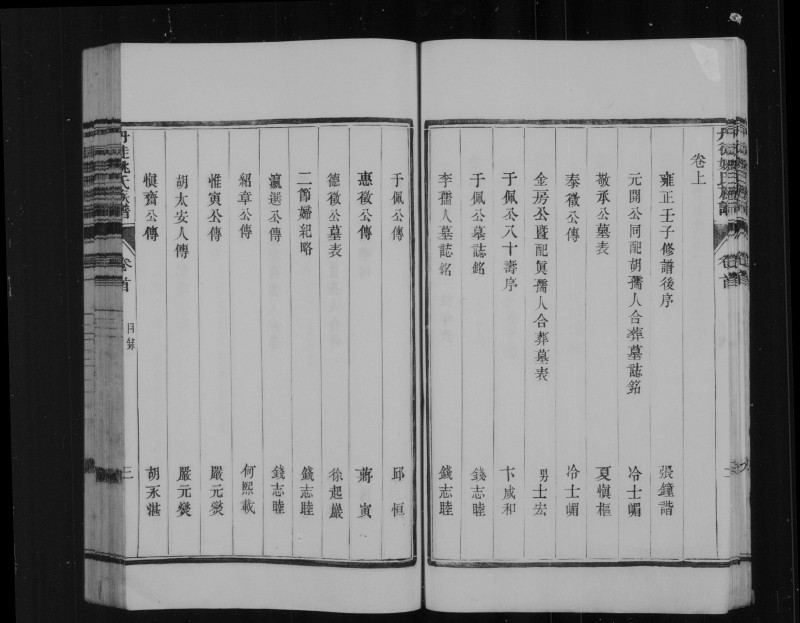 卷上
雍正壬子修譜後序 張鐘諧
元開公同配胡孺人合葬墓誌銘 冷士嵋
敬承公墓表 夏慎樞
泰徵公傳 冷士嵋
金房公暨配眞孺人合葬墓表 男士宏
于佩公八十壽序 卞咸和
于佩公墓誌銘 錢志睦
李孺人墓誌銘 錢志睦
于佩公傳 邱恒
惠徵公傳 蔣寅
德徵公墓表 徐起巖
二節婦紀略 錢志睦
瀛選公傳 錢志睦
紹章公傳 何熙載
惟寅公傳 嚴元燮
胡太安人傳 嚴元燮
愼齋公傳 胡永湛
氏族譜 卷首 目錄 三